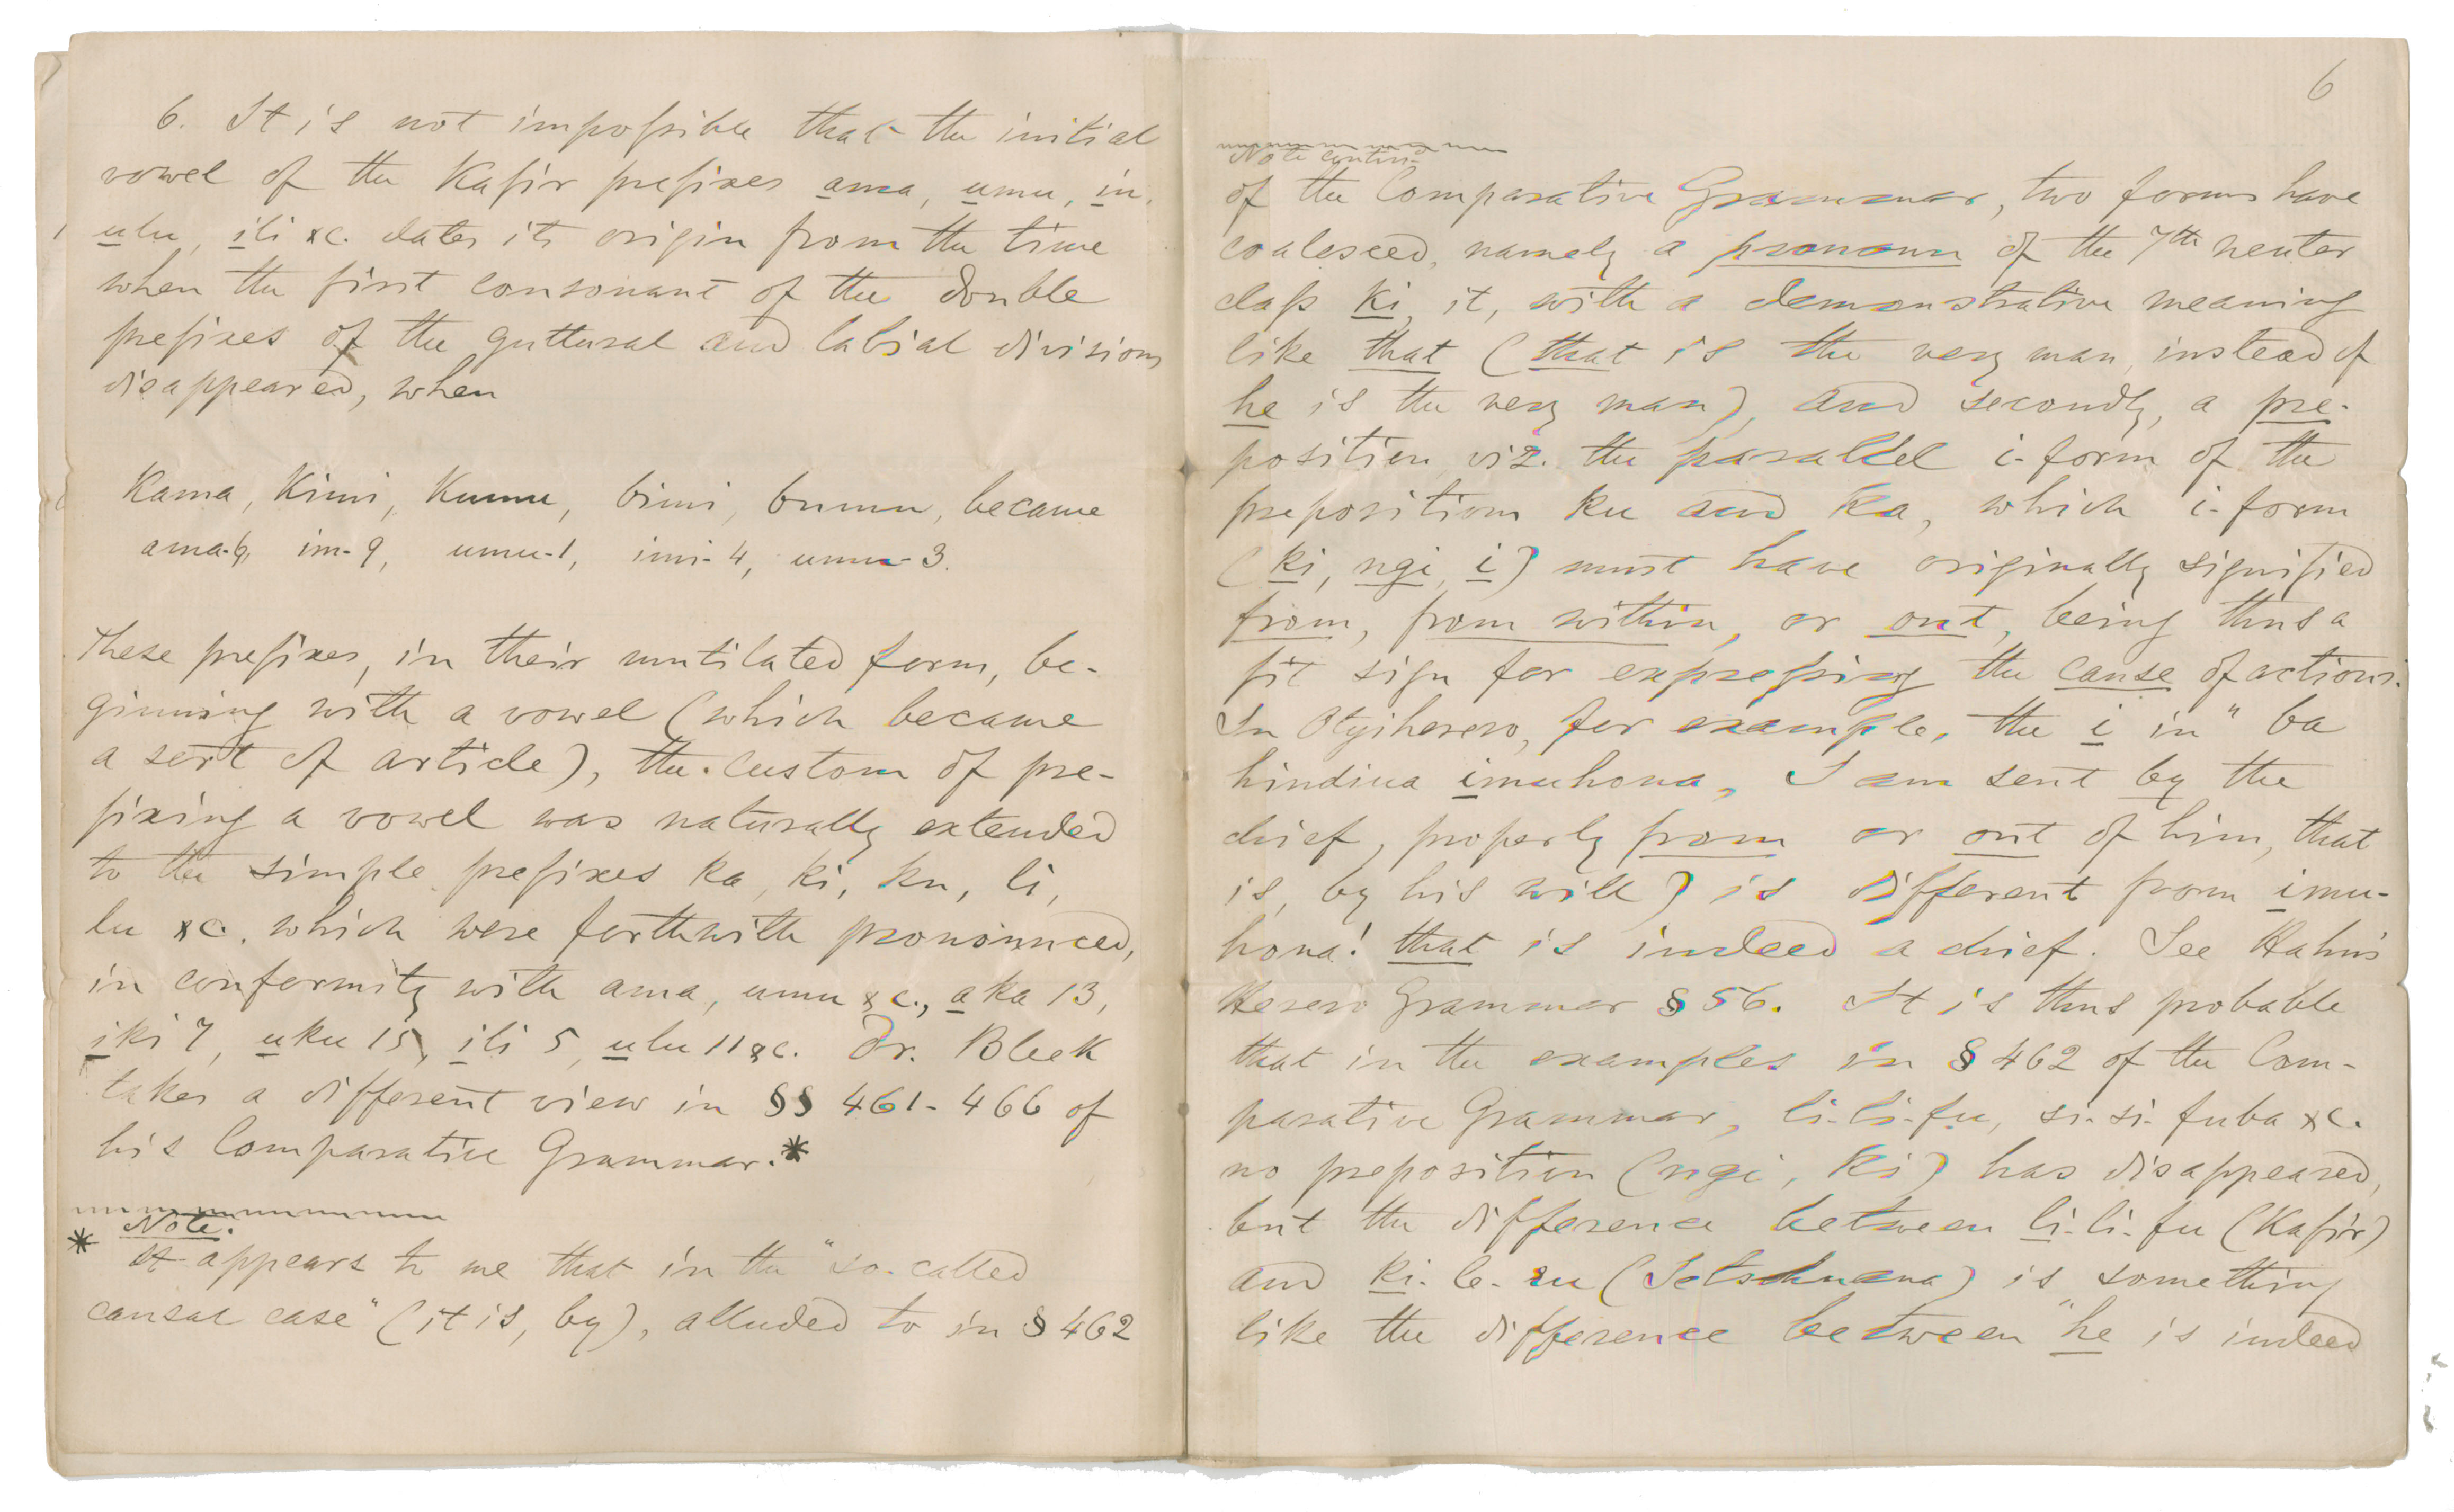 6. It is not impossible that the initial
vowel of the Kafir prefixes ama, umu, in,
ulu, ili &c. dates its origin from the time
when the first consonant of the double
prefixes of the guttural and labial divisions
disappeared, when
Kama, Kimi, Kumu, bimi, bumu, became
ama-6, im-9, umu-1, imi-4, umu-3.
These prefixes, in their mutilated form, be-
ginning with a vowel (which became
a sort of article), the custom of pre-
fixing a vowel was naturally extended
to the simple prefixes ka, ki, ku, li,
lu &c. which were forthwith pronounced,
in conformity with ama, umu &c., aka 13,
iki 7, uku 15, ili 5, ulu 11 &c. Dr. Bleek
takes a different view in §§ 461-466 of
his Comparative Grammar.*
* Note.
It appears to me that in the "so-called
causal case" (it is, by), alluded to in § 462
6
Note contin.
of the Comparative Grammar, two forms have
coalesced, namely a pronoun of the 7th neuter
class ki, it, with a demonstrative meaning
like that (that is the very man, instead of
he is the very man), and secondly, a pre-
position, viz. the parallel i-form of the
prepositions ku and ka, which i-form
(ki, ngi, i) must have originally signified
from, from within, or out, being thus a
fit sign for expressing the cause of actions.
In Otyiherero, for example, the i in "ba
hindiua imuhona, I am sent by the
chief, properly from or out of him, that
is, by his will) is different from imu-
hona! that is indeed a chief. See Hahn's
Herero Grammar § 56. It is thus probable
that in the examples in § 462 of the Com-
parative Grammar, li-li-fu, si-si-fuba &c.
no preposition (ngi, ki) has disappeared,
but the difference between li-li-fu (Kafir)
and ki-le-ru (Setschuana) is something
like the difference between "he is indeed